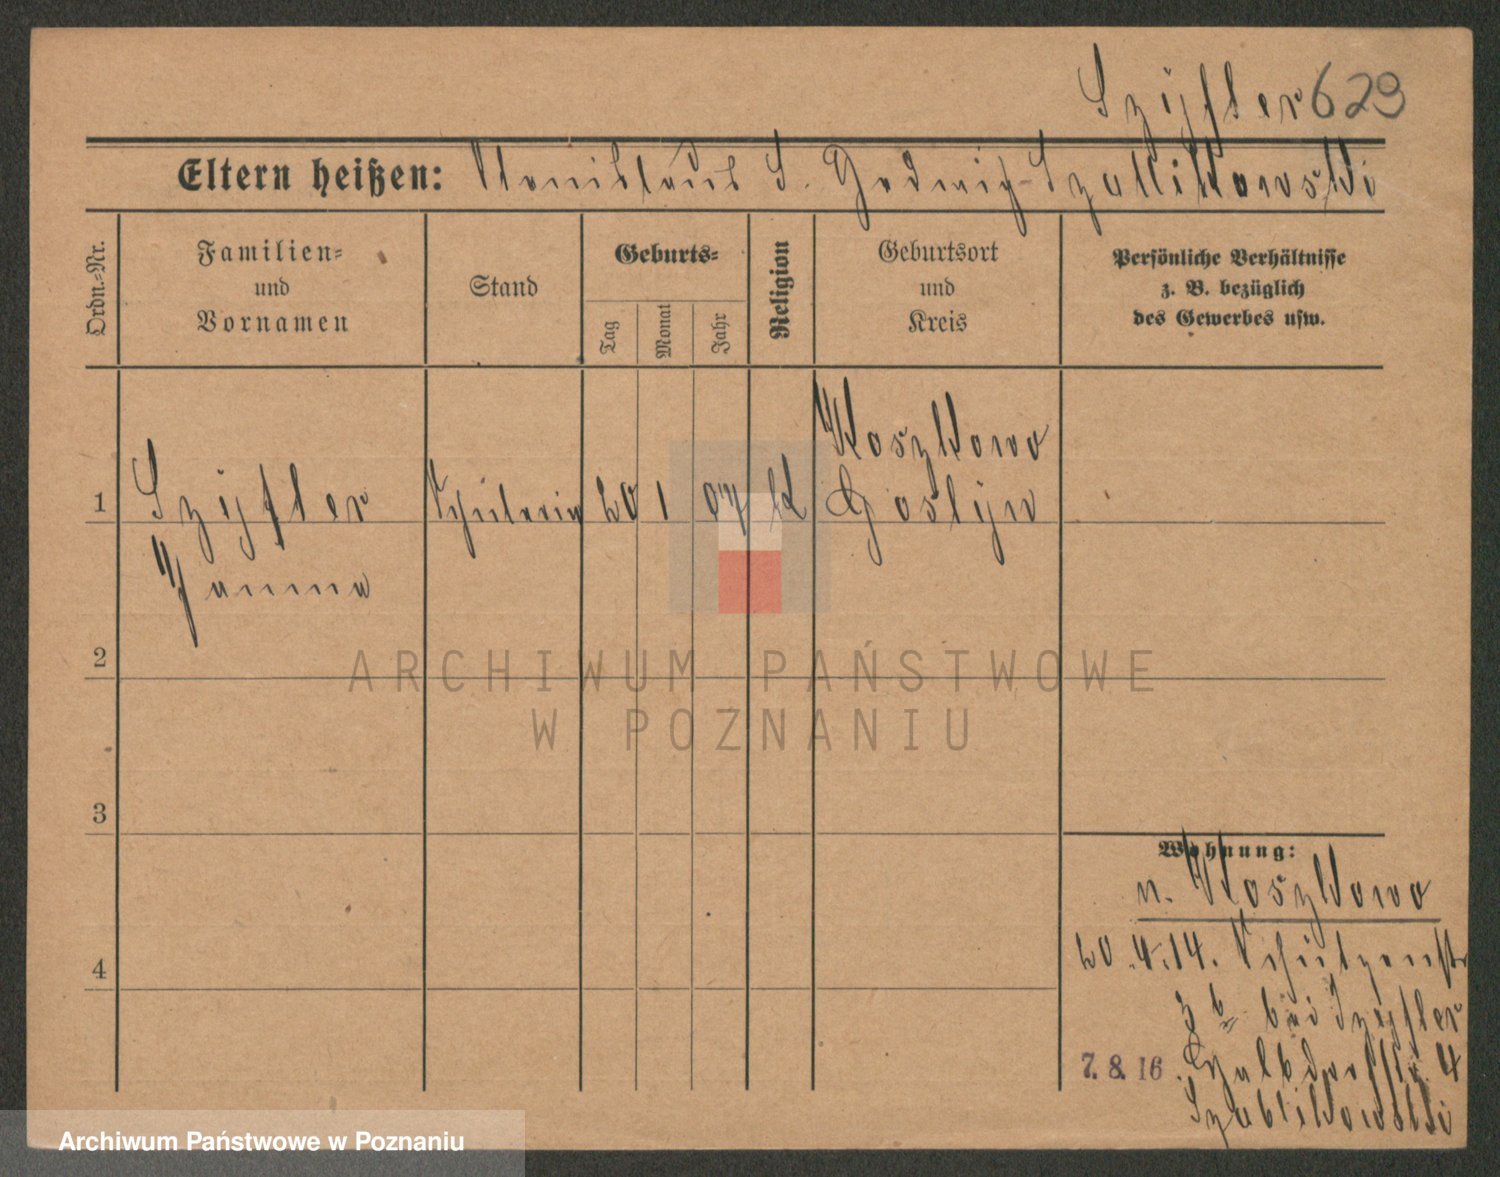 Szyfter 629
Eltern heißen: Stanislaus S. Hedwig Szatkowski
Ordn.-Nr.
Familien-
und
Vornamen
Stand
Geburts-
Tag
Monat
Jahr
Religion
Geburtsort
und
Kreis
Persönliche Verhältnisse
z. B. bezüglich
des Gewerbes usw.
Koszkowo
1 Szyfter Schülerin 20 1 07 k Gostyn
2
3
4
Wohnung:
n. Koszkowo
20.4.14. Schützenstr
bei Szyfter
7. 8. 16. Halbdorfstr. 4
ARCHIWUM PAŃSTWOWE
W POZNANIU
Archiwum Państwowe w Poznaniu